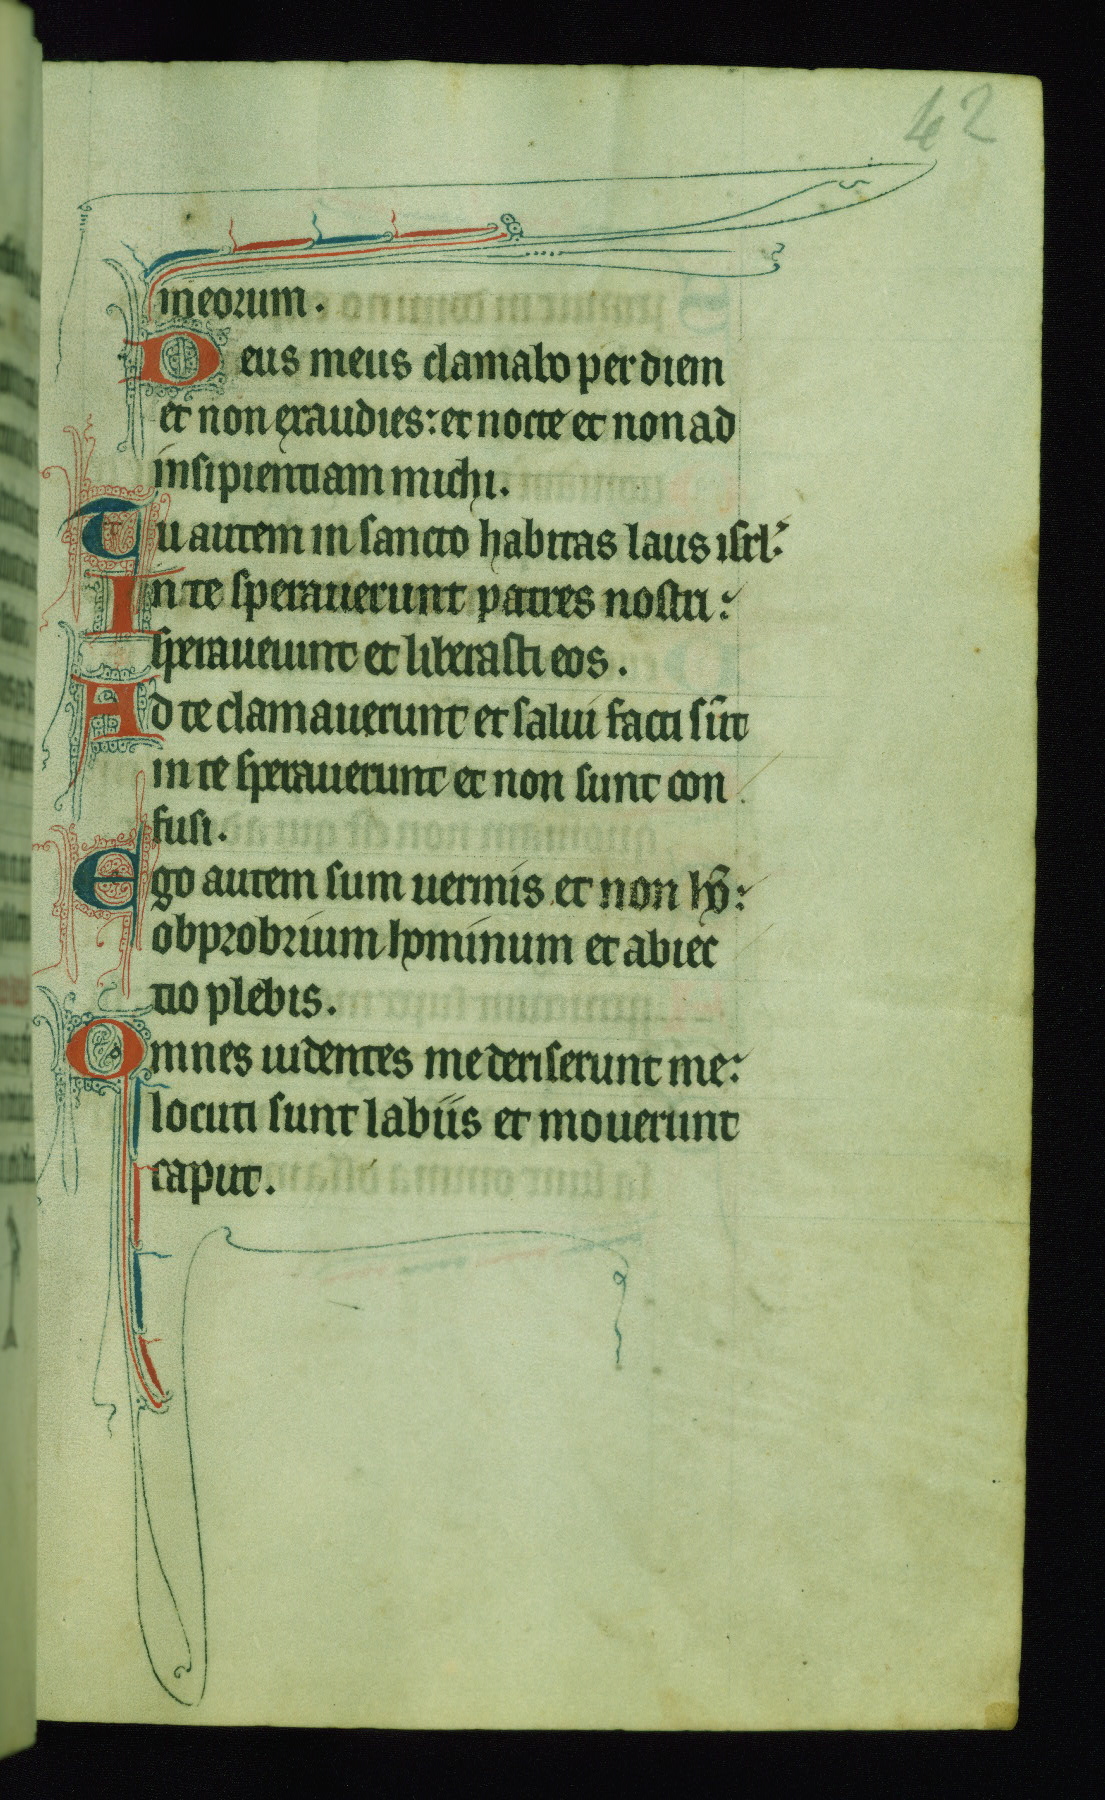 42
meorum.
Deus meus clamabo per diem
et non exaudies: et nocte et non ad
insipientiam michi.
Tu autem in sancto habitas laus isrl:
In te sperauerunt patres nostri:
sperauerunt et liberasti eos.
Ad te clamauerunt et salui facti sūt
in te sperauerunt et non sunt con
fusi.
Ego autem sum uermis et non hō:
obprobrium hominum et abiec
tio plebis.
Omnes uidentes me deriserunt me:
locuti sunt labiis et mouerunt
caput.